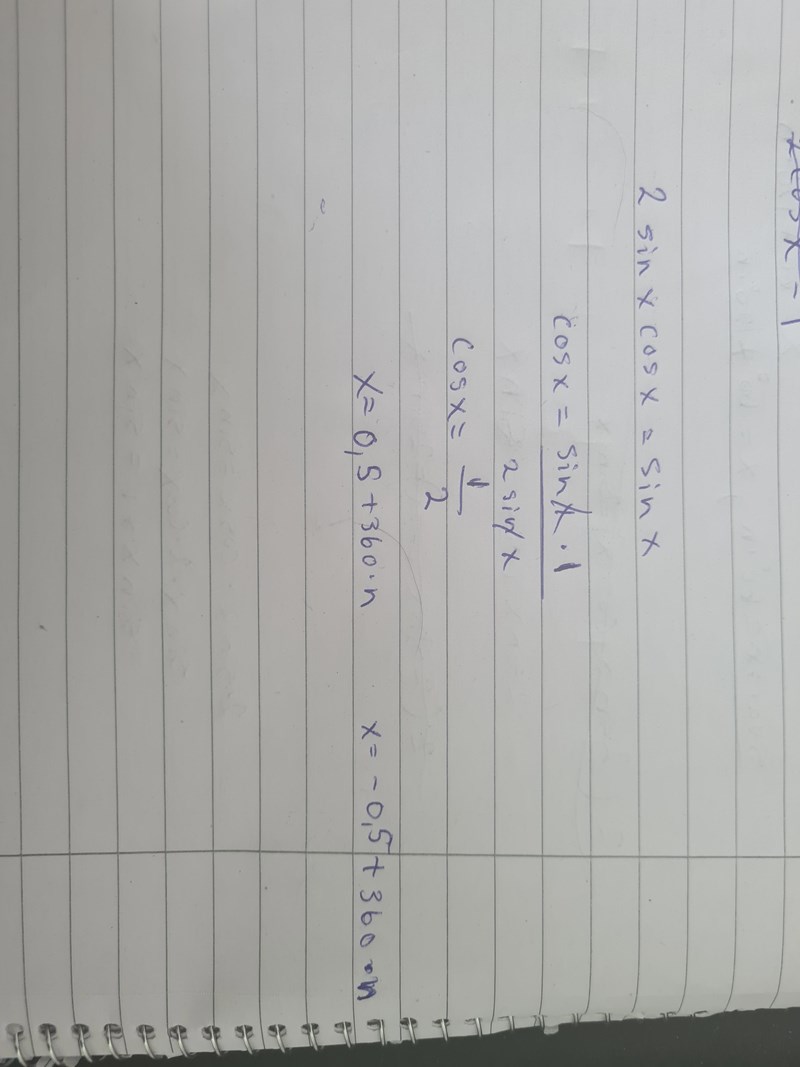 2 sin x cos x = sin x
cos x = sin x · 1
2 sin x
cos x = 1
2
x = 0,5 + 360 · n x = -0,5 + 360 · n